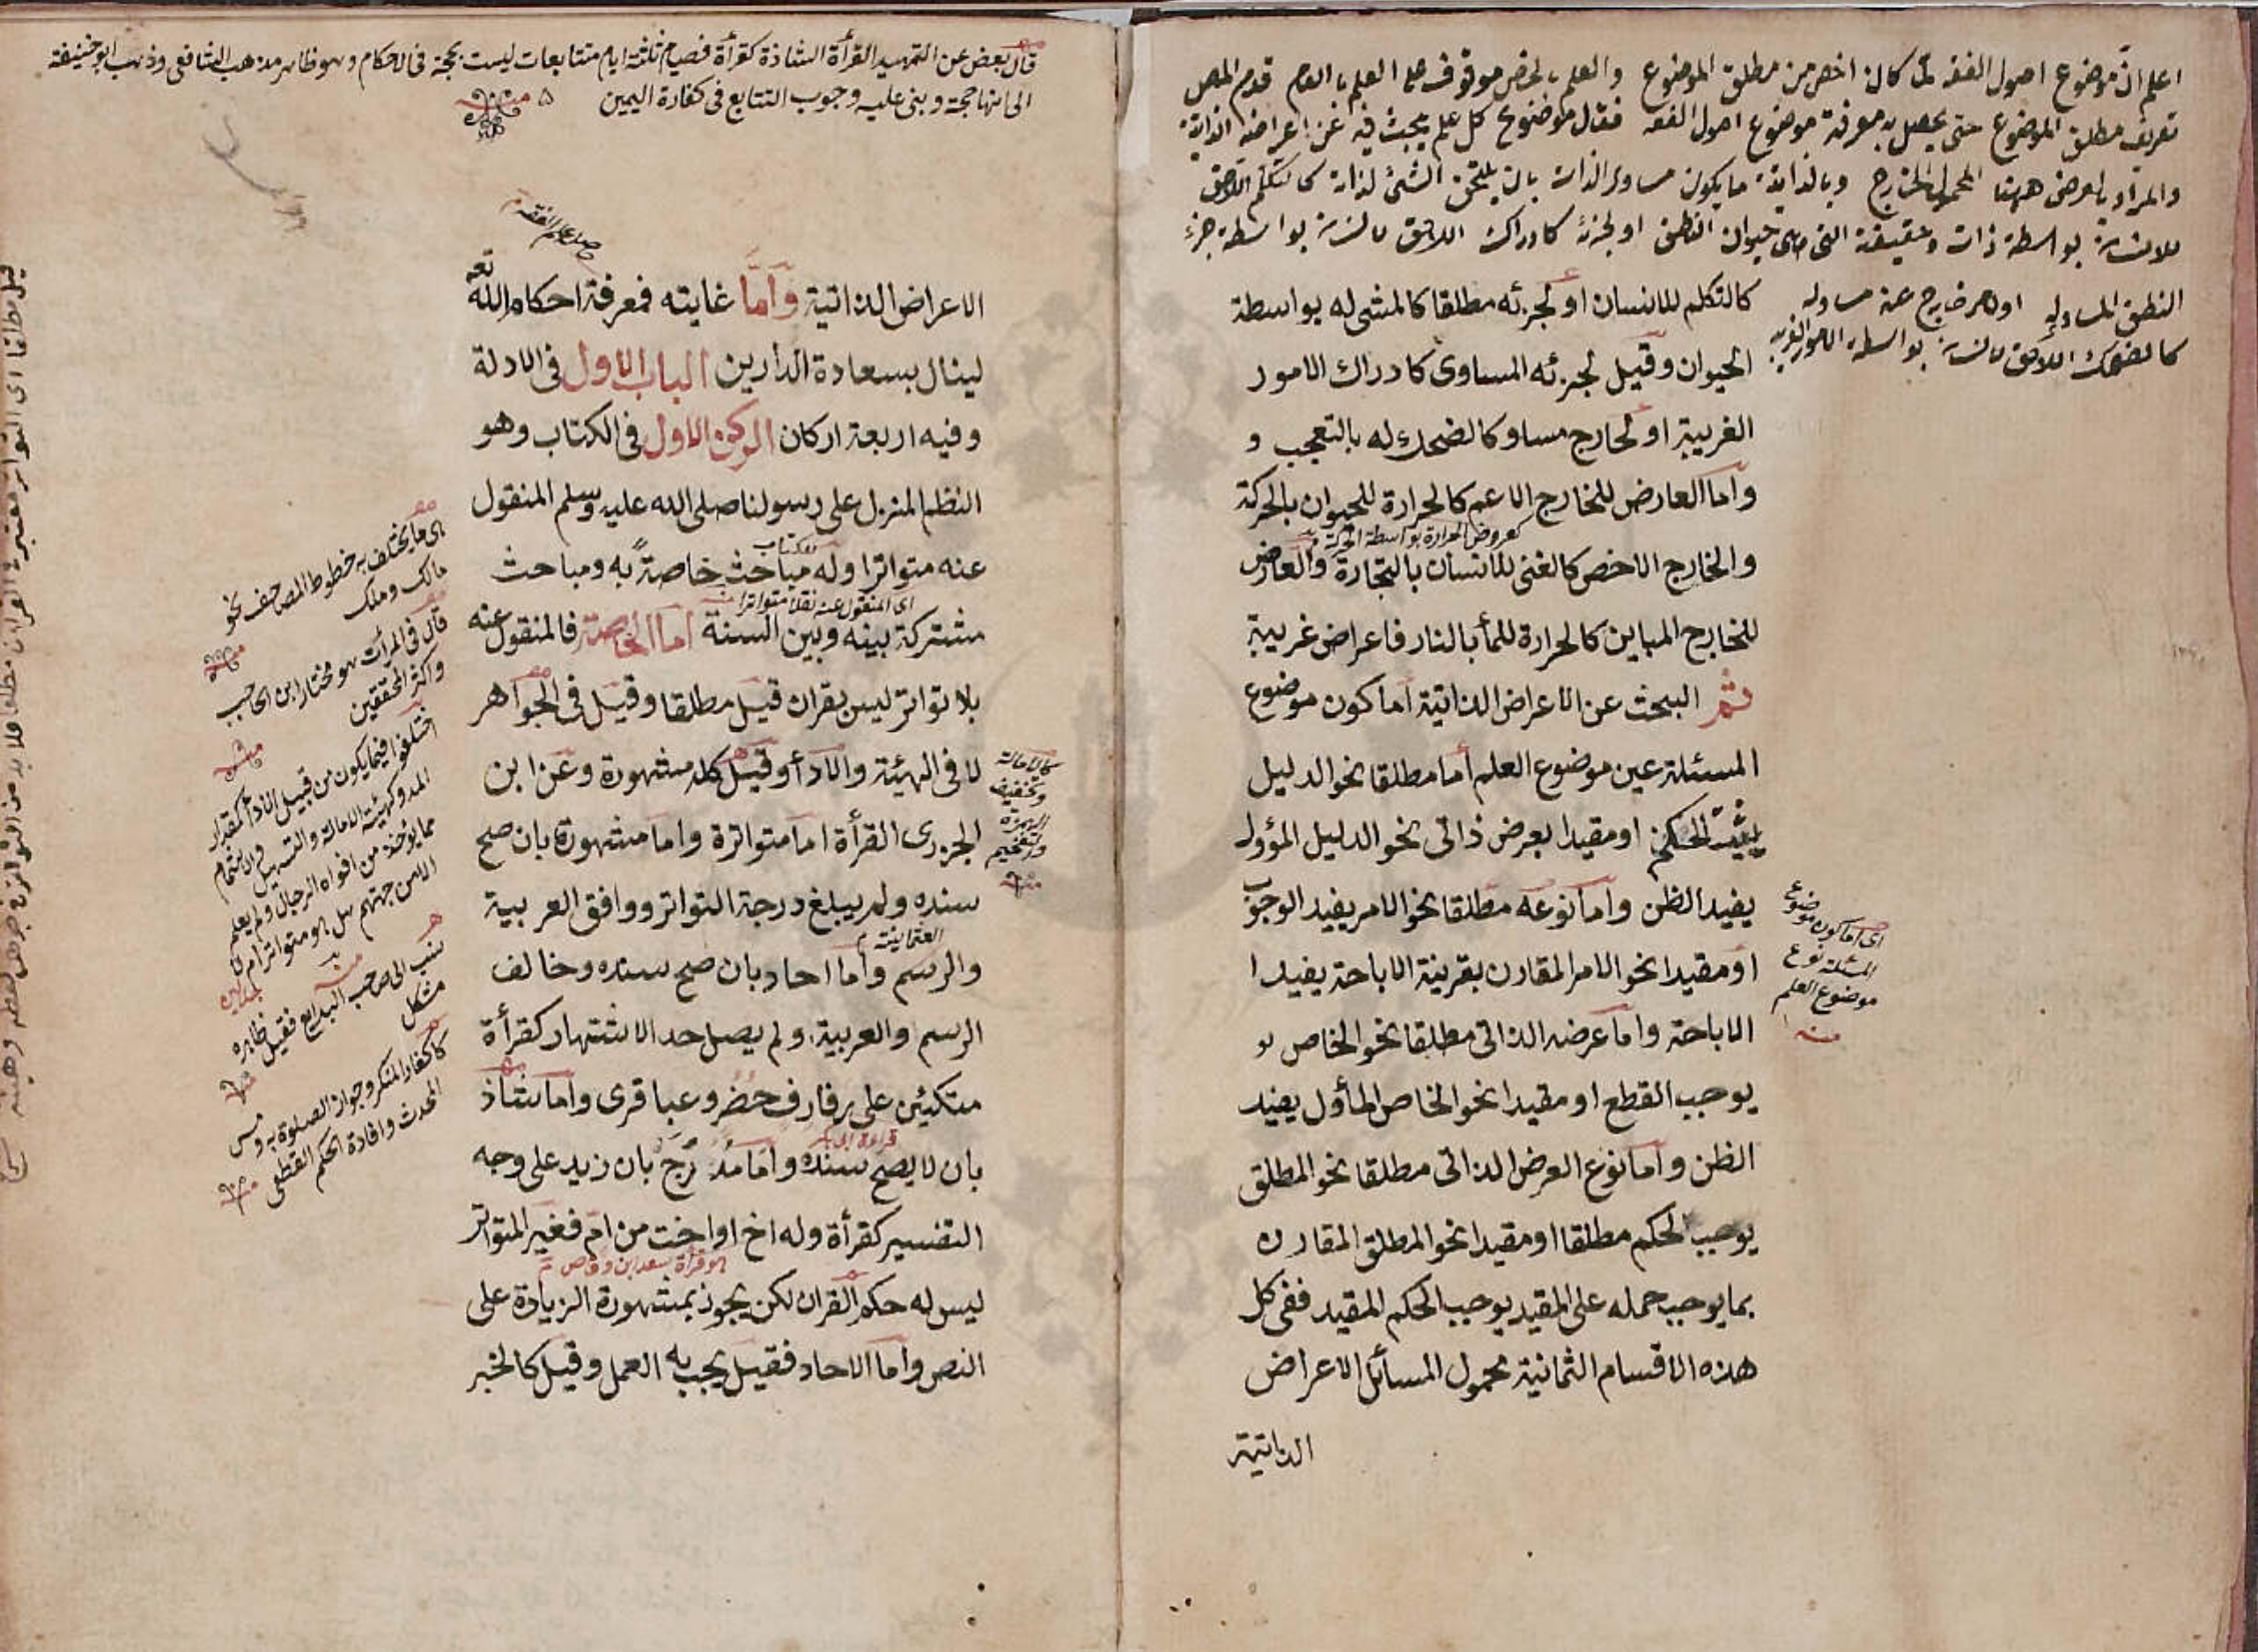 اعلم ان موضوع اصول الفقه لما كان اخص من مطلق الموضوع والعلم بالخص موقوف على العلم بالعام قدم المص
تعريف مطلق الموضوع حتى يحصل به معرفة موضوع اصول الفقه فقال موضوع كل علم يبحث فيه عن اعراضه الذاتية
والمراد بالعرض ههنا المحمول الخارج وبالذاتية ما يكون مساوى الذات بان يلحق الشئ لذاته كالتكلم اللاحق
للانسان بواسطة ذات وحقيقة التى هى حيوان الناطق او لجزئه كادراك اللاحق للانسان بواسطة جزء
الناطق المساوى له او لامر خارج عنه مساو له
كالضحك اللاحق للانسان بواسطة الامور الغريبة
كالتكلم للانسان او لجزئه مطلقا كالمشى له بواسطة
الحيوان وقيل لجزئه المساوى كادراك الامور
الغريبة او لخارج مساو كالضحك له بالتعجب و
واما العارض للخارج الاعم كالحرارة للحيوان بالحركة
كعروض الحرارة بواسطة الحركة
والخارج الاخص كالغنى للانسان بالتجارة والعارض
للخارج المباين كالحرارة للمأ بالنار فاعراض غريبة
ثم البحث عن الاعراض الذاتية اما كون موضوع
المسئلة عين موضوع العلم اما مطلقا نحو الدليل
يثبت الحكم او مقيدا بعرض ذاتى نحو الدليل المؤول
يفيد الظن واما نوعه مطلقا نحو الامر يفيد الوجوب
او مقيدا نحو الامر المقارن بقرينة الاباحة يفيد ا
الاباحة واما عرضه الذاتى مطلقا نحو الخاص يو
يوجب القطع او مقيدا نحو الخاص المأول يفيد
الظن واما نوع العرض الذاتى مطلقا نحو المطلق
يوجب الحكم مطلقا او مقيدا نحو المطلق المقارن
بما يوجب حمله على المقيد يوجب الحكم المقيد ففى كل
هذه الاقسام الثمانية محمول المسائل الاعراض
الذاتية
اى اما كون موضوع
المسئلة نوع
موضوع العلم
منه
قال بعض عن التمهيد القرأة الشاذة كقرأة فصيام ثلثة ايام متتابعات ليست بحجة فى الاحكام وهو ظاهر مذهب الشافعى وذهب ابو حنيفة
الى انها حجة وبنى عليه وجوب التتابع فى كفارة اليمين
الاعراض الذاتية واما غايته فمعرفة احكام الله تعه
لينال بسعادة الدارين الباب الاول فى الادلة
وفيه اربعة اركان الركن الاول فى الكتاب وهو
النظم المنزل على رسولنا صلى الله عليه وسلم المنقول
للكتاب
عنه متواترا وله مباحث خاصة به ومباحث
اى المنقول عنه نقلا متواترا
مشتركة بينه وبين السنة اما الخاصة فالمنقول عنه
بلا تواتر ليس بقران قيل مطلقا وقيل فى الجواهر
لا فى الهيئة والادأ وقيل كله مشهورة وعن ابن
الجزرى القرأة اما متواترة واما مشهورة بان صح
سنده ولم يبلغ درجة التواتر ووافق العربية
العثمانية
والرسم واما احاد بان صح سنده وخالف
الرسم والعربية ولم يصل حد الاشتهار كقرأة
متكئين على رفارف خضر وعباقرى واما شاذ
بان لا يصح سنده واما مدرج بان زيد على وجه
التفسير كقرأة وله اخ او اخت من ام فغير المتواتر
هو قرأة سعد ابن وقاص
ليس له حكم القران لكن يجوز بمشهورة الزيادة على
النص واما الاحاد فقيل يجب به العمل وقيل كالخبر
كالامالة
وتخفيف
الهمزة
والتفخيم
اى ما يختلف به خطوط المصاحف نحو
مالك وملك
قال فى المرأت هو مختار ابن الحاجب
واكثر المحققين
اختلفوا فيما يكون من قبيل الادأ كمقدار
المد وكهيئة الامالة والتسهيل والاشمام
مما يؤخذ من افواه الرجال ولم يعلم
الا من جهتهم هل هو متواتر ام لا
نسب الى صاحب البدايع فقيل ظاهره
مشكل
كاكفار المنكر وجواز الصلوة به ومس
المحدث وافادة الحكم القطعى